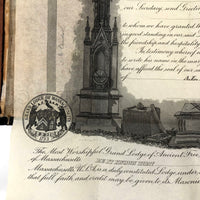 our Wardens, and Greeting
to whom we have granted th
ingood standing in our said
the friendship and hospitality
In testimony whereof
to write his name in the mar
and affixed the seal of our
The Most Worshipful Grand Lodge of Ancient Free
of Massachusetts BE IT KNOWN THAT
Massachusetts U.S.A is a duly constituted Lodge, under
that full faith and credit may be given to its Masonic